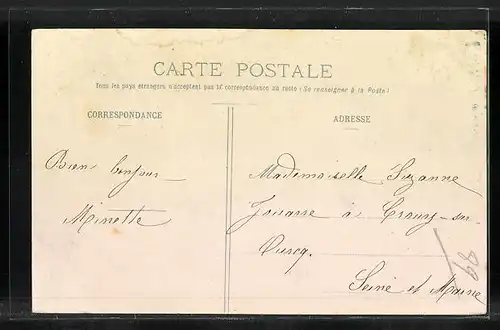 CARTE POSTALE
Tous les pays étrangers n'acceptent pas la correspondance au recto (Se renseigner à la Poste)
CORRESPONDANCE
ADRESSE
Bien bonjour
Minette
Mademoiselle Suzanne
Jouarre à Crouy-sur-
Ourcq.
Seine et Marne